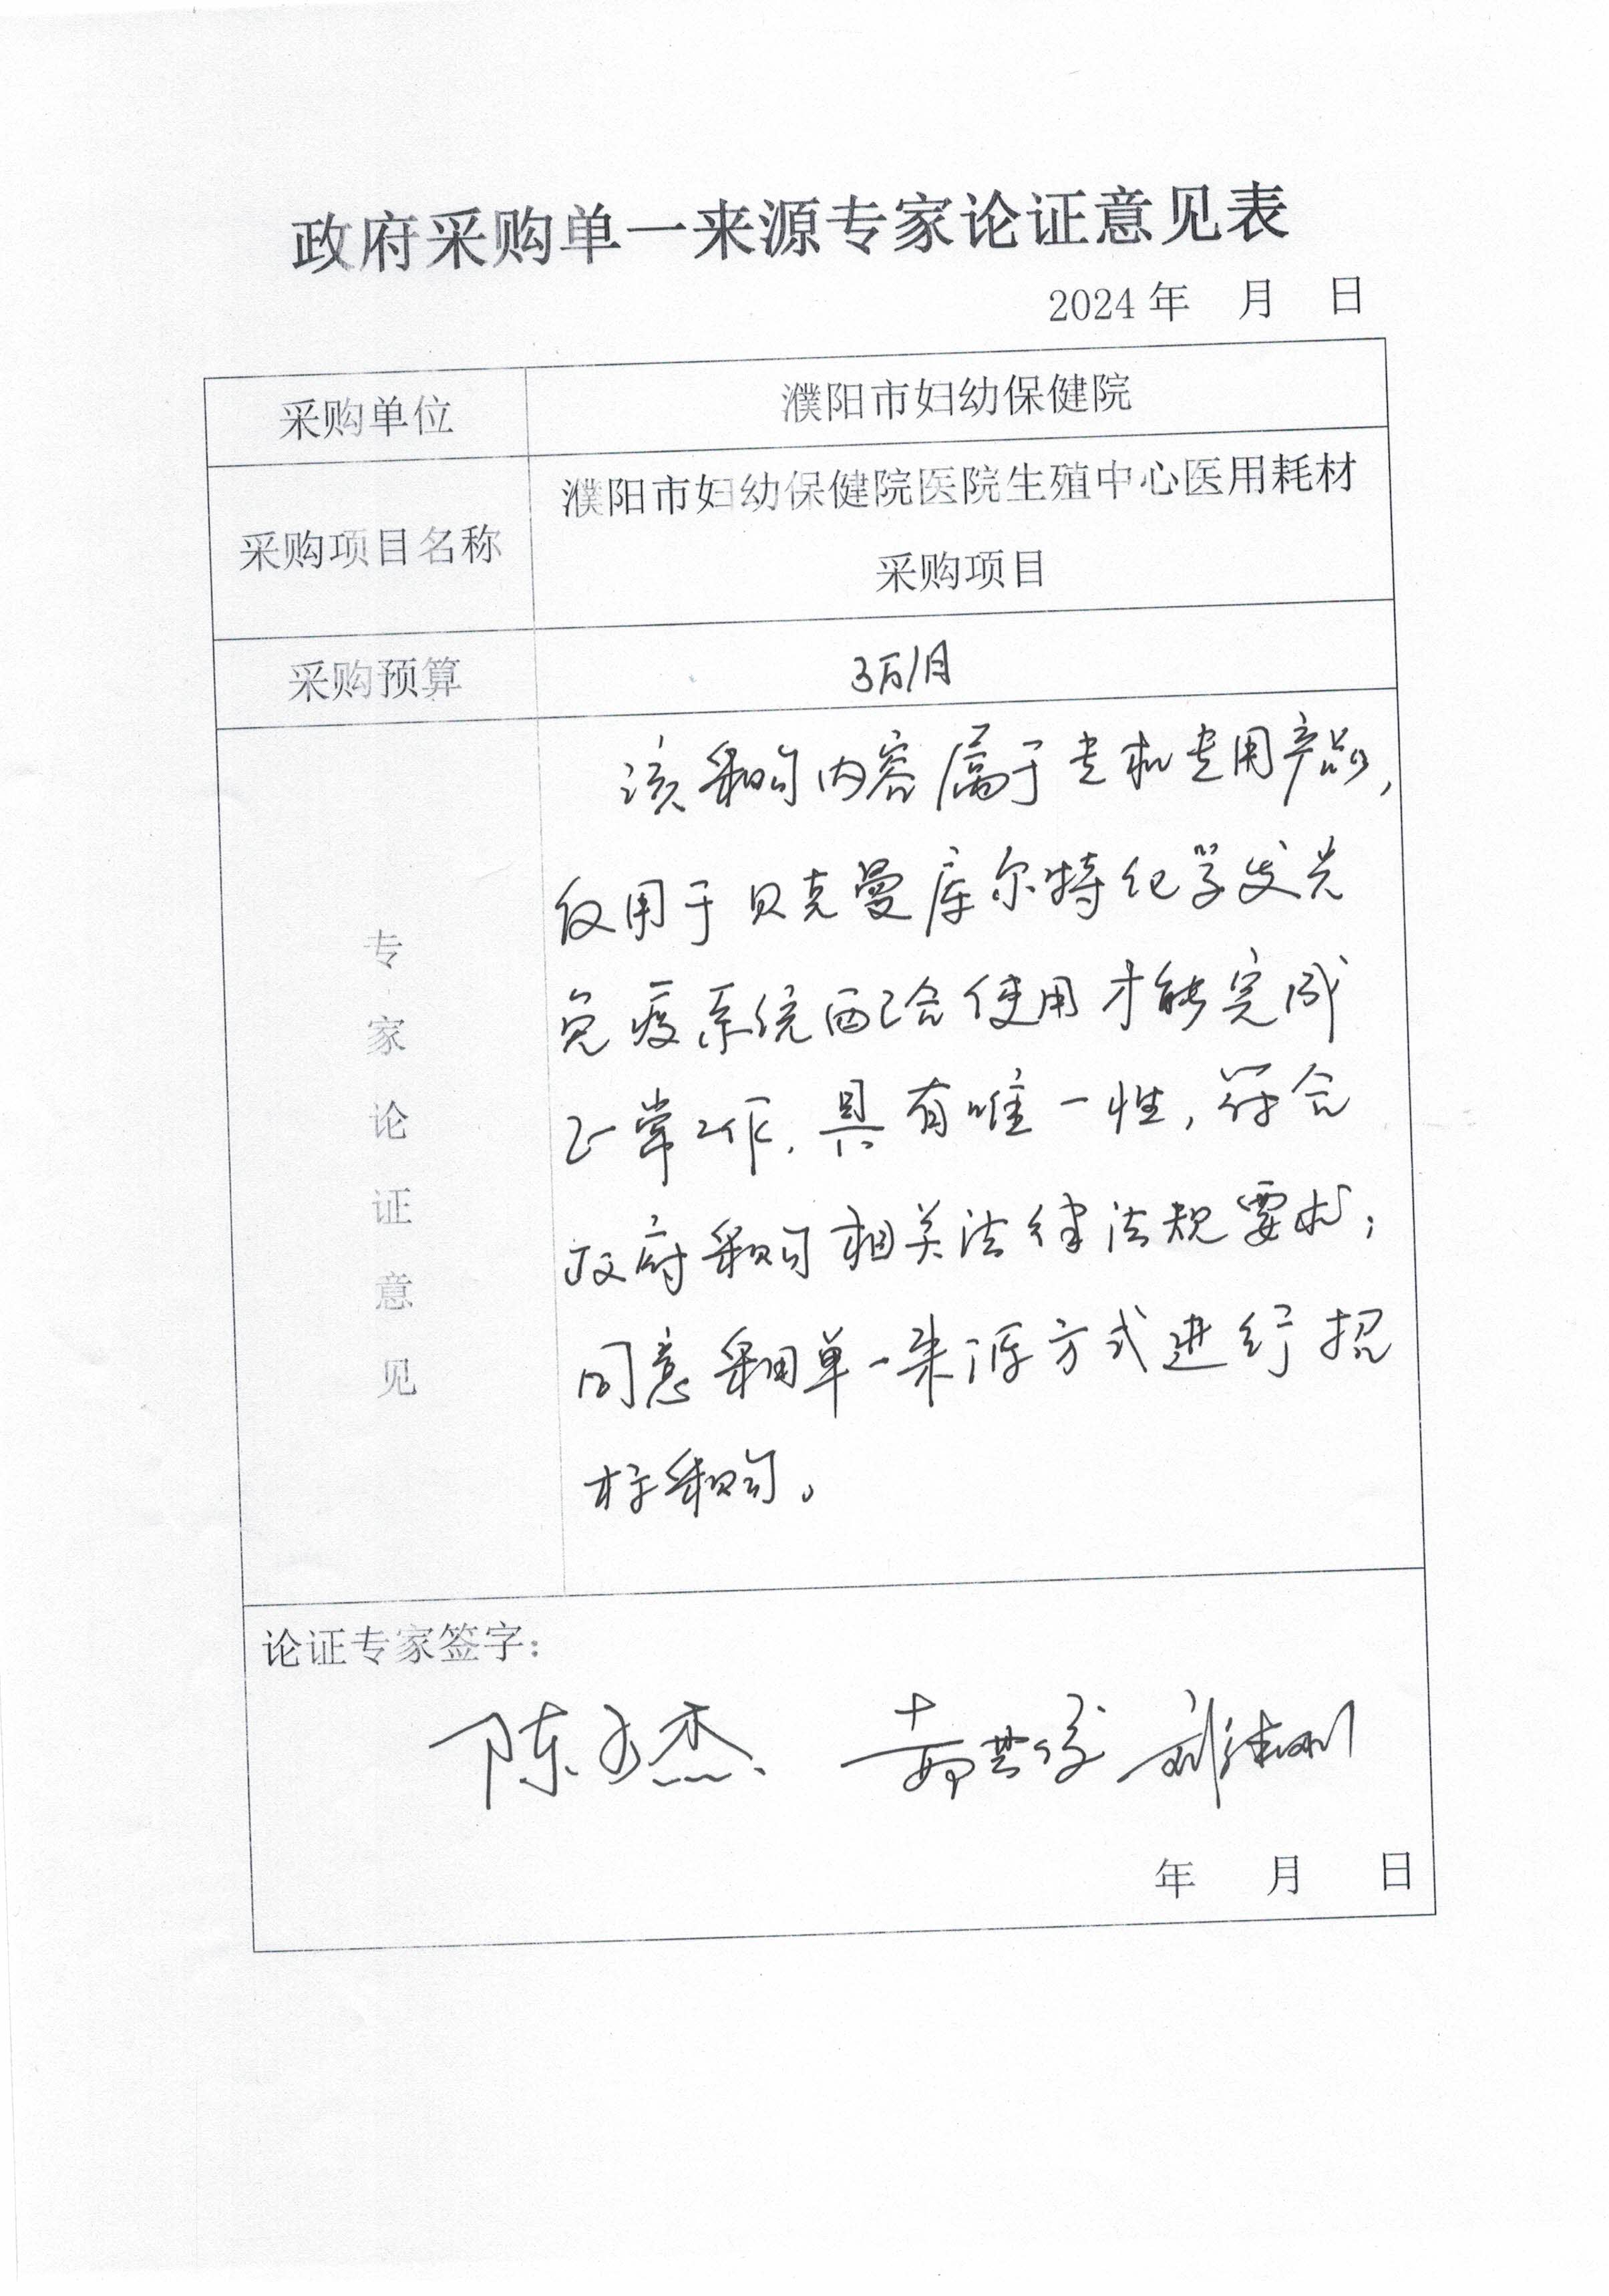 政府采购单一来源专家论证意见表
2024年 月 日
采购单位
濮阳市妇幼保健院
采购项目名称
濮阳市妇幼保健院医院生殖中心医用耗材
采购项目
采购预算
3万/月
专家论证意见
该采购内容属于专机专用产品,
仅用于贝克曼库尔特化学发光
免疫系统配合使用才能完成
正常工作.具有唯一性,符合
政府采购相关法律法规要求;
同意采用单一来源方式进行招
标采购。
论证专家签字:
陈 杰
年 月 日